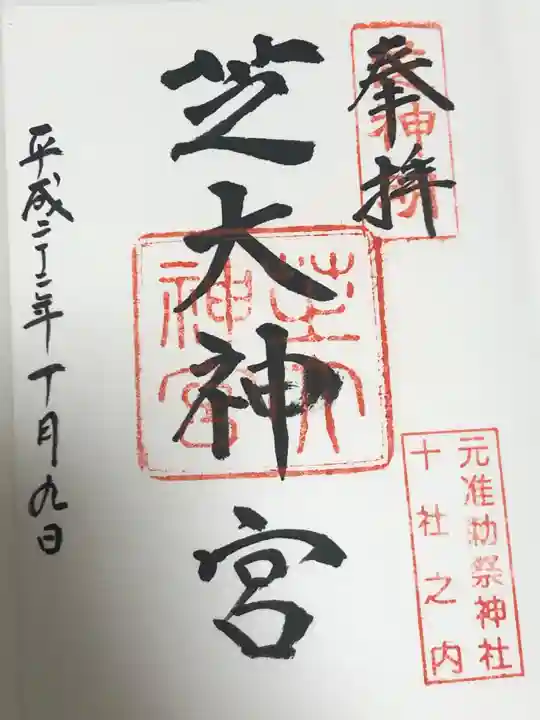 奉拝
芝大神宮
平成二十二年十月九日
芝大
神宮
元准勅祭神社
十社之内